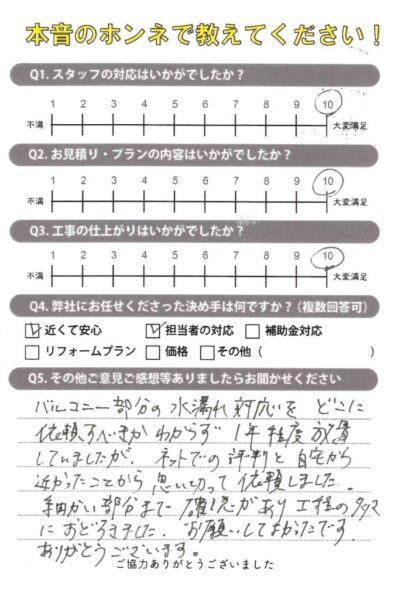 本音のホンネで教えてください!
Q1. スタッフの対応はいかがでしたか?
1 2 3 4 5 6 7 8 9 10
不満 大変満足
Q2. お見積り・プランの内容はいかがでしたか?
1 2 3 4 5 6 7 8 9 10
不満 大変満足
Q3. 工事の仕上がりはいかがでしたか?
1 2 3 4 5 6 7 8 9 10
不満 大変満足
Q4. 弊社にお任せくださった決め手は何ですか?(複数回答可)
近くて安心 担当者の対応 補助金対応
リフォームプラン 価格 その他( )
Q5. その他ご意見ご感想等ありましたらお聞かせください
バルコニー部分の水漏れ対応を どこに
依頼すべきか わからず 1年程度 放置
していましたが、ネットでの評判と自宅から
近かったことから 思い切って依頼しました。
細かい部分まで 確認があり 工程の多さ
におどろきました。お願いしてよかったです。
ありがとうございます。
ご協力ありがとうございました